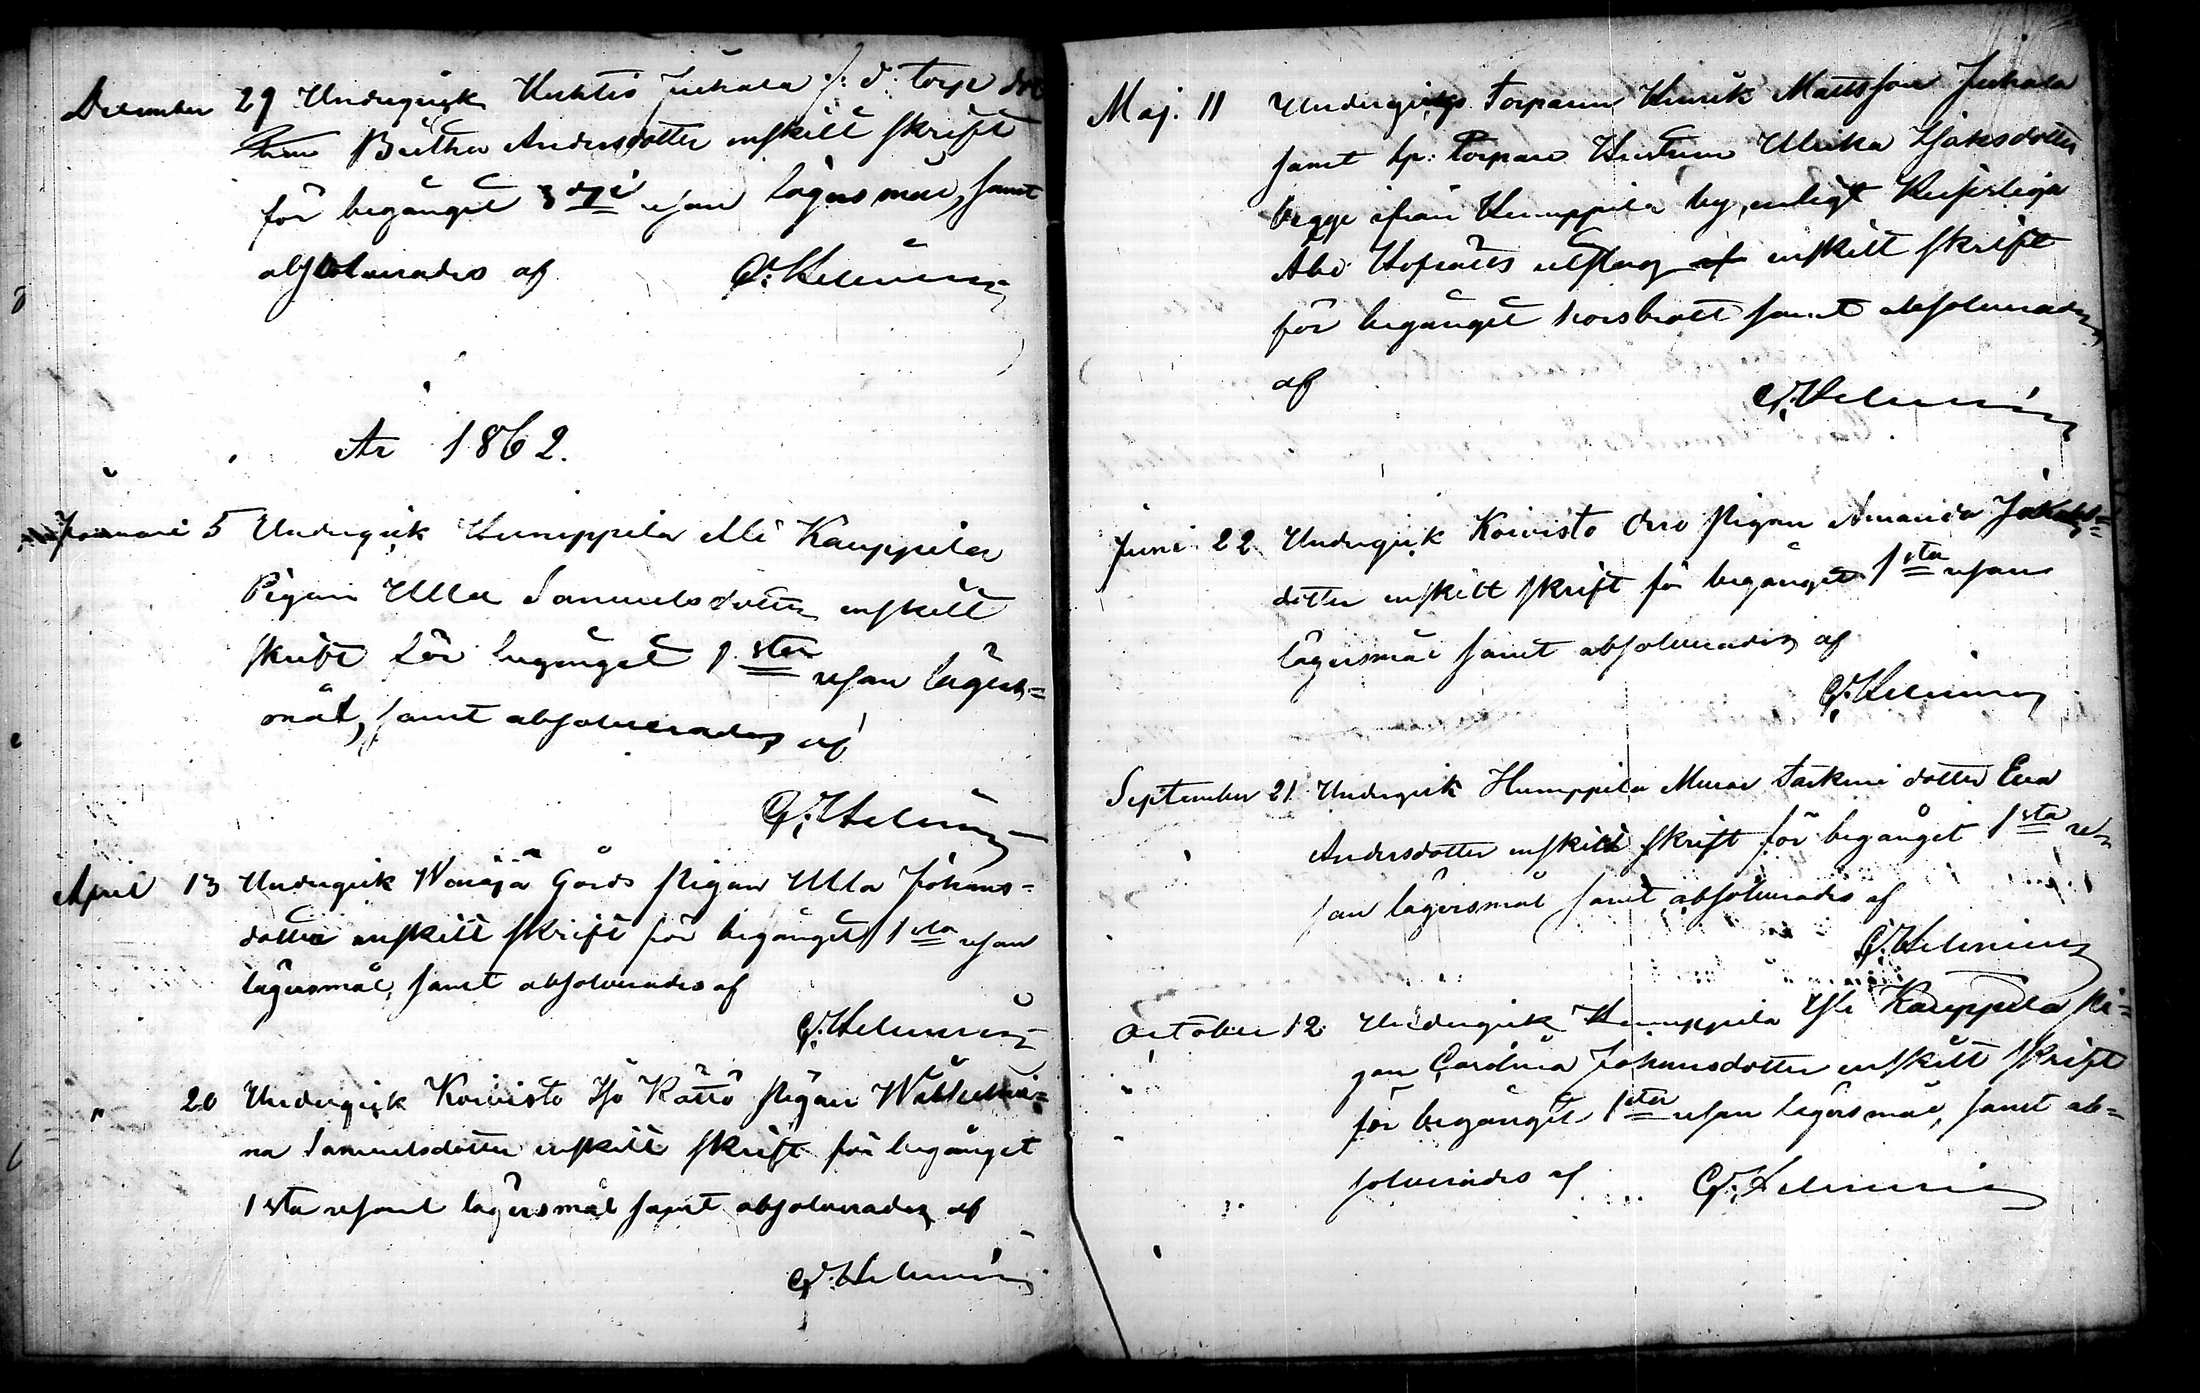 December 29 Undergick Huhtis Juhala f: d. torp dot
Bertha Andersdotter enskilt skrift
för begånget 3dje resan lägersmål, samt
absolverades af G: Helenius
År 1862.
Januari 5 Undergick Humppila Alli Kauppila
Pigan Ulla Samuelsdotter enskilt
skrift för begånget 1sta resan lägers=
mål, samt absolverades af
G: Helenius
April 13 Undergick Wenäjä Gårds Pigan Ulla Johans=
dotter enskilt skrift för begånget 1sta resan
lägersmål, samt absolverades af
G: Helenius
" 20 Undergick Koivisto Iso Rättö Pigan Wilhelmi=
na Samuelsdotter enskilt skrift för begånget
1sta resan lägersmål samt absolverades af
G: Helenius
Maj. 11 Undergingo Torparen Henrik Mattsson Juhala
samt sp: Torpare Hustrun Ulrika Isaksdotter
begge ifrån Humppila by, enligt Kejserliga
Åbo Hofrätts utslag enskilt skrift
för begånget horsbrott samt absolverades
af
G: Helenius
Juni 22 Undergick Koivisto Orro Pigan Amanda Jakobs=
dotter enskilt skrift för begånget 1sta resan
lägersmål samt absolverades af
G: Helenius
September 21 Undergick Humppila Murar Tarkeni dotter Eva
Andersdotter enskilt skrift för begånget 1sta re=
san lägersmål samt absolverades af
G: Helenius
October 12 Undergick Humppila Yli Kauppila Pi=
gan Carolina Johansdotter enskilt skrift
för begånget 1sta resan lägersmål, samt ab=
solverades af G: Helenius